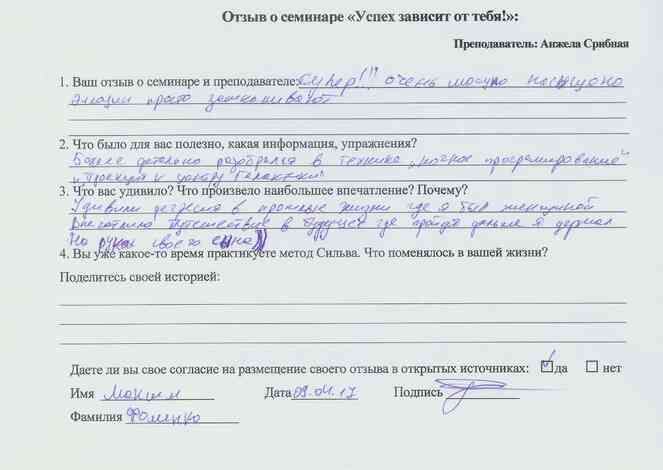 Отзыв о семинаре «Успех зависит от тебя!»:
Преподаватель: Анжела Срибная
1. Ваш отзыв о семинаре и преподавателе: Супер!!! очень мощно насыщено
эмоции просто зашкаливают
2. Что было для вас полезно, какая информация, упражнения?
Более детально разобрался в технике „ночное програмирование"
и „Проекция к центру Галактики"
3. Что вас удивило? Что произвело наибольшее впечатление? Почему?
Удивили в прошлые жизни где я был женщиной
Впечатлило путешествие в будущее где пройдя дальше я держал
На руках своего сына))
4. Вы уже какое-то время практикуете метод Сильва. Что поменялось в вашей жизни?
Поделитесь своей историей:
Даете ли вы свое согласие на размещение своего отзыва в открытых источниках: да нет
Имя Максим Дата 09.04.17 Подпись
Фамилия Фоменко